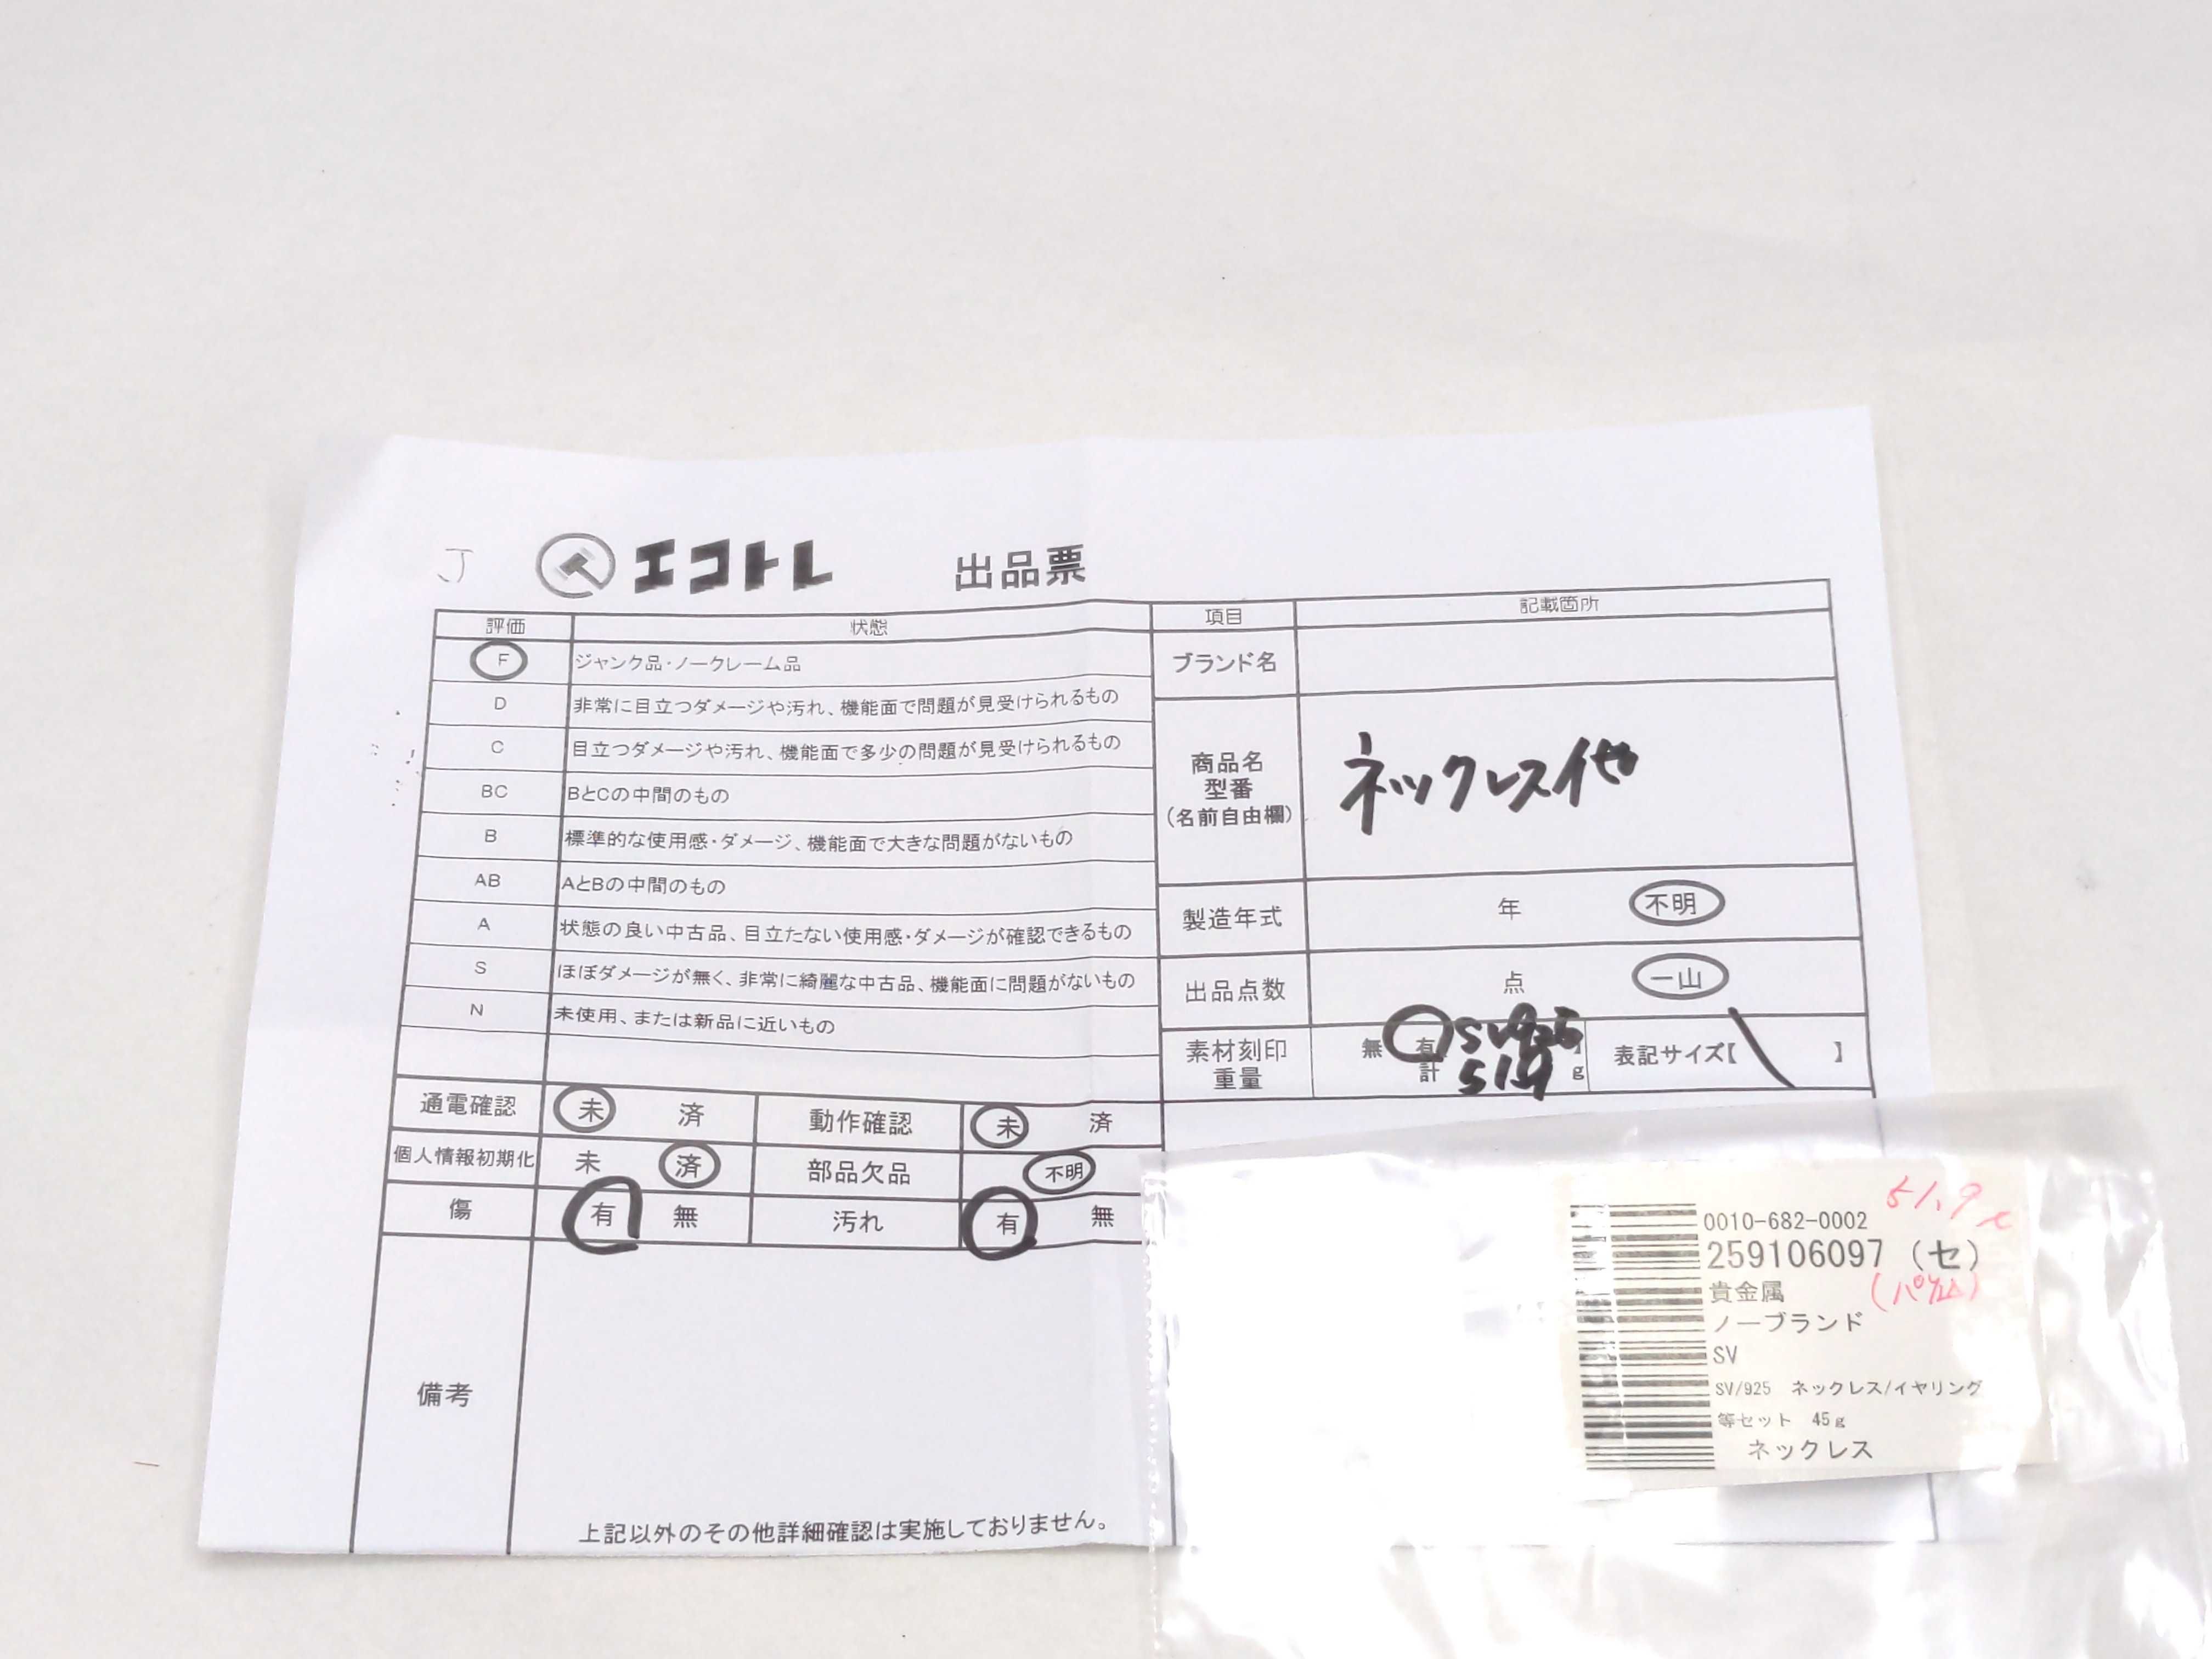 J
エコトレ 出品票
評価 状態
F ジャンク品・ノークレーム品
D 非常に目立つダメージや汚れ、機能面で問題が見受けられるもの
C 目立つダメージや汚れ、機能面で多少の問題が見受けられるもの
BC BとCの中間のもの
B 標準的な使用感・ダメージ、機能面で大きな問題がないもの
AB AとBの中間のもの
A 状態の良い中古品、目立たない使用感・ダメージが確認できるもの
S ほぼダメージが無く、非常に綺麗な中古品、機能面に問題がないもの
N 未使用、または新品に近いもの
通電確認 未 済 動作確認 未 済
個人情報初期化 未 済 部品欠品 不明
傷 有 無 汚れ 有 無
備考
上記以外のその他詳細確認は実施しておりません。
項目 記載箇所
ブランド名
商品名
型番
(名前自由欄)
ネックレス他
製造年式 年 不明
出品点数 点 一山
素材刻印 無 有 SV925 】
重量 計 g
表記サイズ【 】
51.9
0010-682-0002
259106097 (セ)
貴金属
ノーブランド
SV
SV/925 ネックレス/イヤリング
等セット 45g
ネックレス